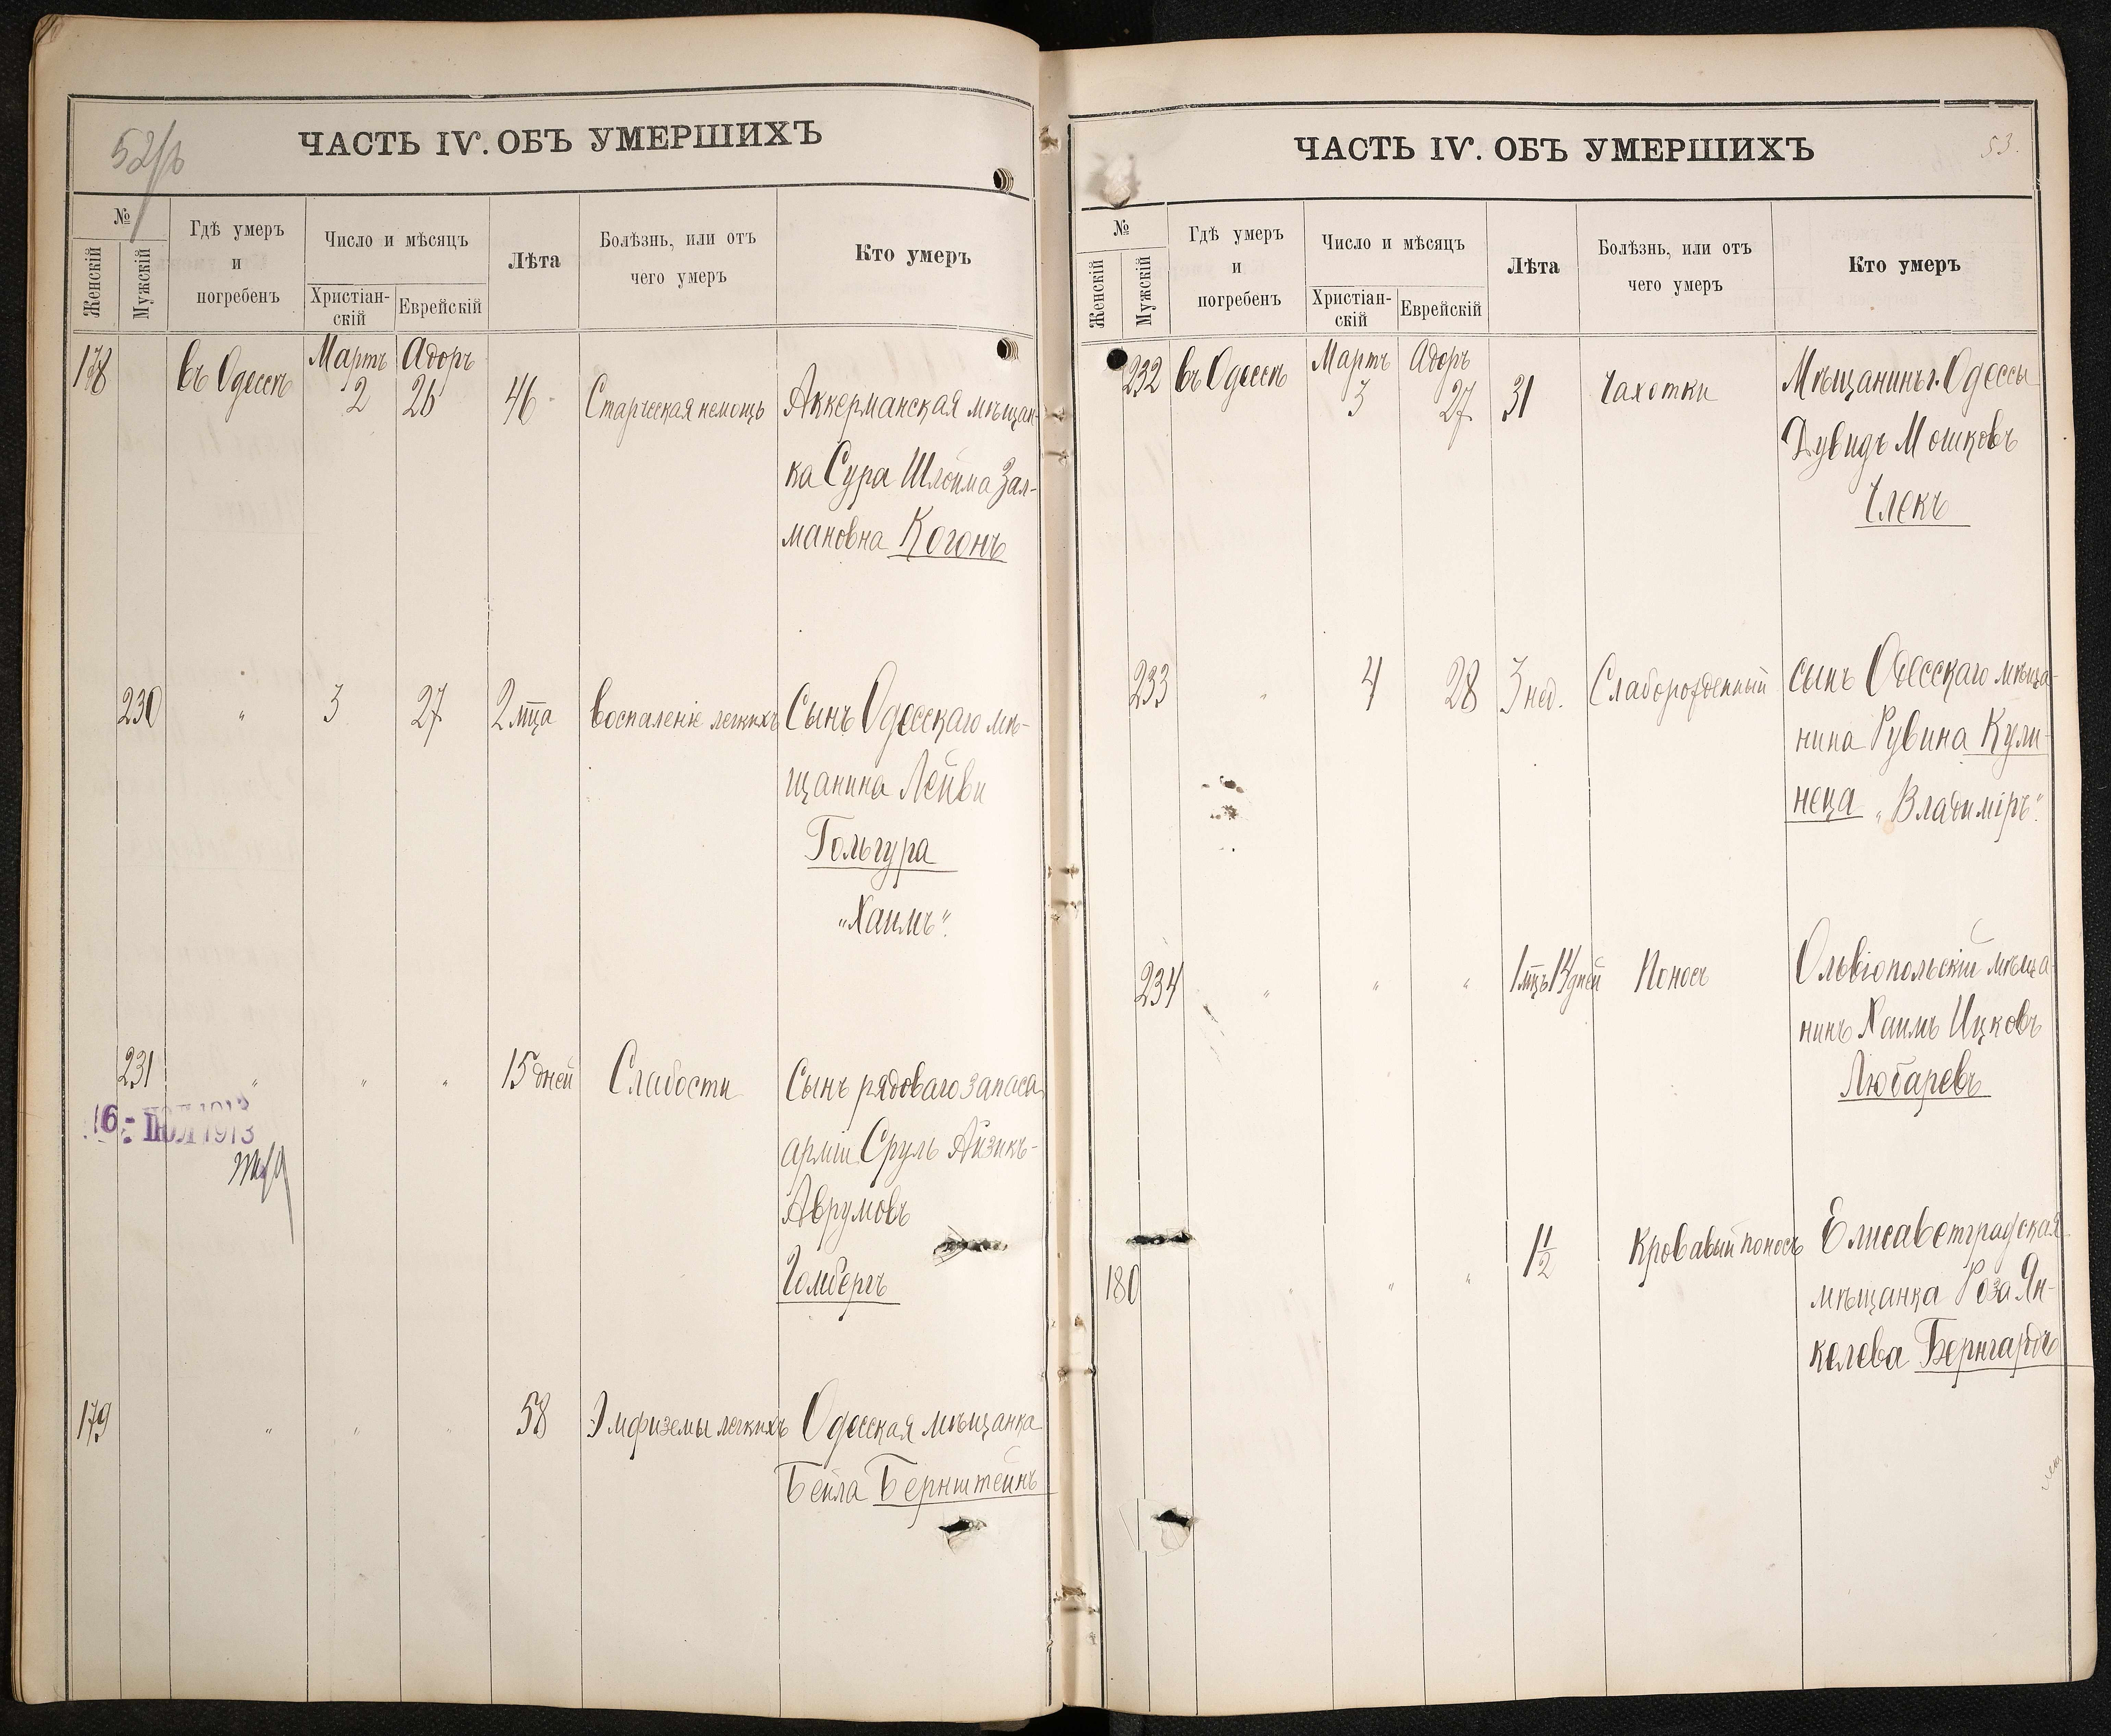 52/об
ЧАСТЬ IV. ОБЪ УМЕРШИХЪ
№
Женскій
Мужскій
Гдѣ умеръ
и
погребенъ
Число и мѣсяцъ
Христіан-
скій
Еврейскій
Лѣта
Болѣзнь, или отъ
чего умеръ
Кто умеръ
178 въ Одессѣ Мартъ 2 Адоръ 26 46 Старческая немощь Аккерманская мѣщан-
ка Сура Шлойма Зал-
мановна Когонъ
230 " 3 27 2 мца воспаленіе легкихъ Сынъ Одесскаго мѣ-
щанина Лейви
Гольгура
"Хаимъ".
231 " " " 15 дней Слабости Сынъ рядоваго запаса
арміи Сруль Айзикъ-
Аврумовъ
Гомбергъ
16 - ІЮЛ 1913
179 " " " 58 Эмфиземы легкихъ Одесская мѣщанка
Бейла Бернштейнъ
53.
ЧАСТЬ IV. ОБЪ УМЕРШИХЪ
№
Женскій
Мужскій
Гдѣ умеръ
и
погребенъ
Число и мѣсяцъ
Христіан-
скій
Еврейскій
Лѣта
Болѣзнь, или отъ
чего умеръ
Кто умеръ
232 въ Одессѣ Мартъ 3 Адоръ 27 31 Чахотки Мѣщанинъ г. Одессы
Дувидъ Мошковъ
Члекъ
233 " 4 28 3 нед. Слаборожденный сынъ Одесскаго мѣща-
нина Рувина Кули-
неца "Владиміръ".
234 " " " 1 мцъ 14 дней Поносъ Ольвіопольскій мѣща-
нинъ Хаимъ Ицковъ
Любаревъ
180 " " " 1 1/2 Кровавый поносъ Елисаветградская
мѣщанка Роза Ян-
келева Бернгардъ